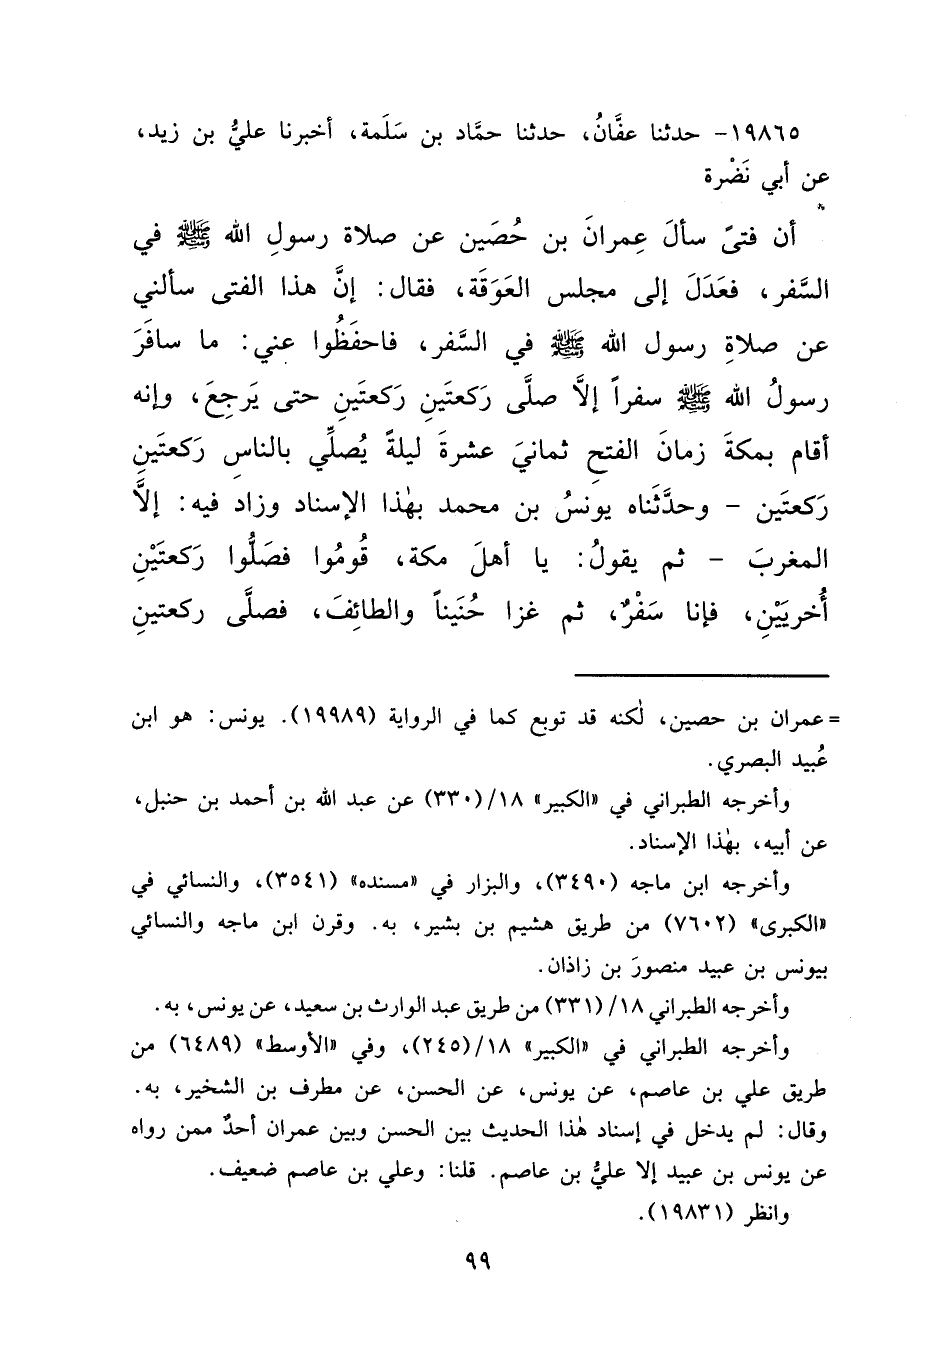 ١٩٨٦٥- حدثنا عفَّانُ، حدثنا حمَّاد بن سَلَمة، أخبرنا عليُّ بن زيد،
عن أبي نَضْرة
أن فتىً سألَ عِمرانَ بن حُصَين عن صلاة رسولِ الله ﷺ في
السَّفر، فعَدَلَ إلى مجلس العَوَقَة، فقال: إنَّ هذا الفتى سألني
عن صلاةِ رسول الله ﷺ في السَّفر، فاحفَظُوا عني: ما سافَرَ
رسولُ الله ﷺ سفراً إلاَّ صلَّى رَكعتَينِ رَكعتَينِ حتى يَرجِعَ، وإنه
أقام بمكةَ زمانَ الفتحِ ثمانيَ عشرةَ ليلةً يُصلِّي بالناسِ رَكعتَينِ
رَكعتَين - وحدَّثَناه يونسُ بن محمد بهٰذا الإسناد وزاد فيه: إلاَّ
المغربَ - ثم يقولُ: يا أهلَ مكة، قُومُوا فصَلُّوا رَكعتَيْنِ
أُخريَيْنِ، فإنا سَفْرٌ، ثم غزا حُنَيناً والطائِفَ، فصلَّى ركعتينِ
= عمران بن حصين، لٰكنه قد توبع كما في الرواية (١٩٩٨٩). يونس: هو ابن
عُبيد البصري.
وأخرجه الطبراني في «الكبير» ١٨/(٣٣٠) عن عبد الله بن أحمد بن حنبل،
عن أبيه، بهٰذا الإسناد.
وأخرجه ابن ماجه (٣٤٩٠)، والبزار في «مسنده» (٣٥٤١)، والنسائي في
«الكبرى» (٧٦٠٢) من طريق هشيم بن بشير، به. وقرن ابن ماجه والنسائي
بيونس بن عبيد منصورَ بن زاذان.
وأخرجه الطبراني ١٨/ (٣٣١) من طريق عبد الوارث بن سعيد، عن يونس، به.
وأخرجه الطبراني في «الكبير» ١٨/(٢٤٥)، وفي «الأوسط» (٦٤٨٩) من
طريق علي بن عاصم، عن يونس، عن الحسن، عن مطرف بن الشخير، به.
وقال: لم يدخل في إسناد هٰذا الحديث بين الحسن وبين عمران أحدٌ ممن رواه
عن يونس بن عبيد إلا عليُّ بن عاصم. قلنا: وعلي بن عاصم ضعيف.
وانظر (١٩٨٣١).
٩٩